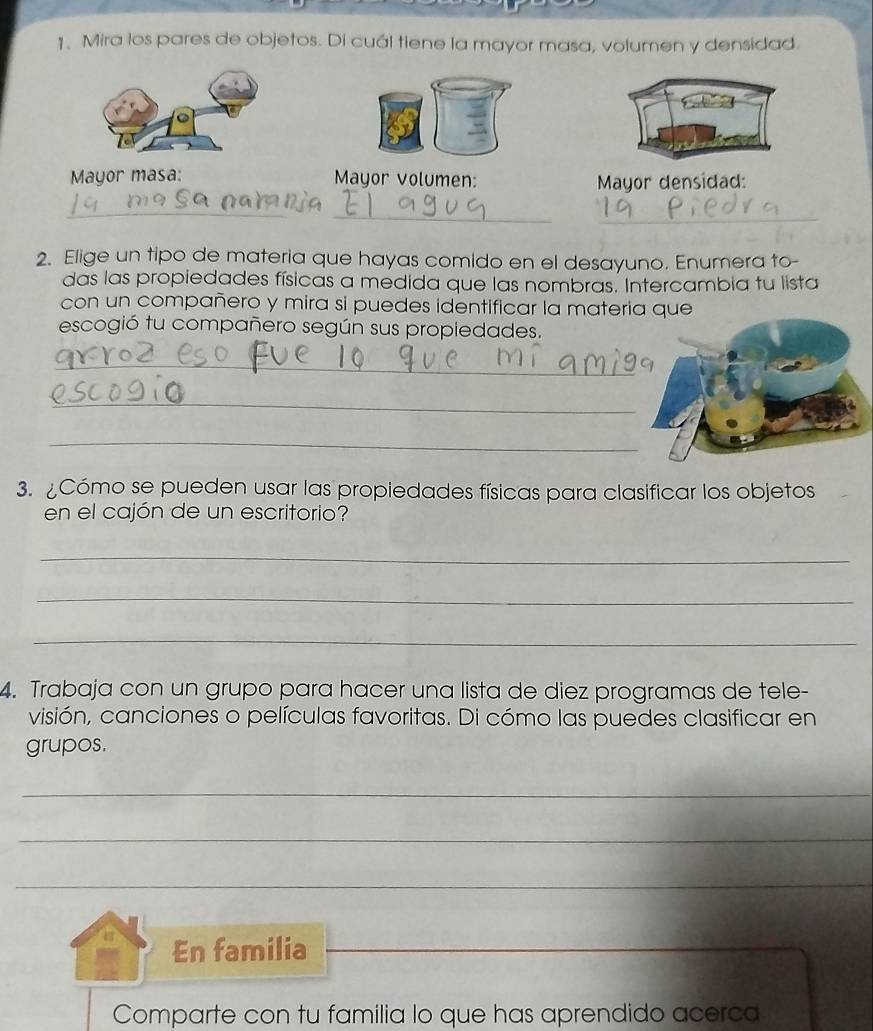 1. Mira los pares de objetos. Di cuál tiene la mayor masa, volumen y densidad.
Mayor masa: Mayor volumen: Mayor densidad:
la masa naranja El agua la piedra
2. Elige un tipo de materia que hayas comido en el desayuno. Enumera to-
das las propiedades físicas a medida que las nombras. Intercambia tu lista
con un compañero y mira si puedes identificar la materia que
escogió tu compañero según sus propiedades.
arroz eso fue lo que mi amiga
escogio
3. ¿Cómo se pueden usar las propiedades físicas para clasificar los objetos
en el cajón de un escritorio?
4. Trabaja con un grupo para hacer una lista de diez programas de tele-
visión, canciones o películas favoritas. Di cómo las puedes clasificar en
grupos.
En familia
Comparte con tu familia lo que has aprendido acerca